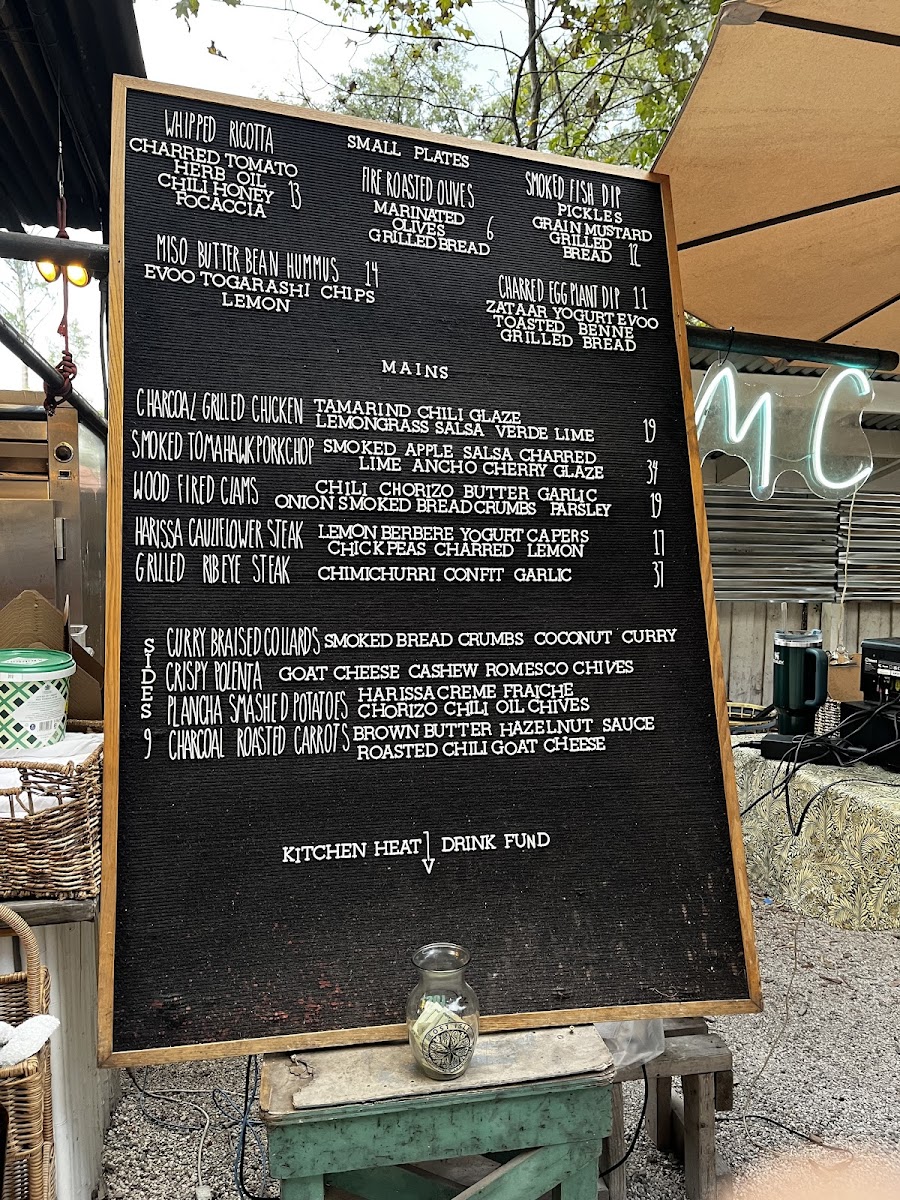 SMALL PLATES
WHIPPED RICOTTA
CHARRED TOMATO
HERB OIL
CHILI HONEY 13
FOCACCIA
FIRE ROASTED OLIVES
MARINATED
OLIVES 6
GRILLED BREAD
SMOKED FISH DIP
PICKLES
GRAIN MUSTARD
GRILLED
BREAD 12
MISO BUTTER BEAN HUMMUS 14
EVOO TOGARASHI CHIPS
LEMON
CHARRED EGGPLANT DIP 11
ZATAAR YOGURT EVOO
TOASTED BENNE
GRILLED BREAD
MAINS
CHARCOAL GRILLED CHICKEN TAMARIND CHILI GLAZE
LEMONGRASS SALSA VERDE LIME 19
SMOKED TOMAHAWK PORKCHOP SMOKED APPLE SALSA CHARRED
LIME ANCHO CHERRY GLAZE 34
WOOD FIRED CLAMS CHILI CHORIZO BUTTER GARLIC
ONION SMOKED BREADCRUMBS PARSLEY 19
HARISSA CAULIFLOWER STEAK LEMON BERBERE YOGURT CAPERS
CHICKPEAS CHARRED LEMON 17
GRILLED RIBEYE STEAK CHIMICHURRI CONFIT GARLIC 37
SIDES 9
CURRY BRAISED COLLARDS SMOKED BREAD CRUMBS COCONUT CURRY
CRISPY POLENTA GOAT CHEESE CASHEW ROMESCO CHIVES
PLANCHA SMASHED POTATOES HARISSA CREME FRAICHE
CHORIZO CHILI OIL CHIVES
CHARCOAL ROASTED CARROTS BROWN BUTTER HAZELNUT SAUCE
ROASTED CHILI GOAT CHEESE
KITCHEN HEAT DRINK FUND
MC